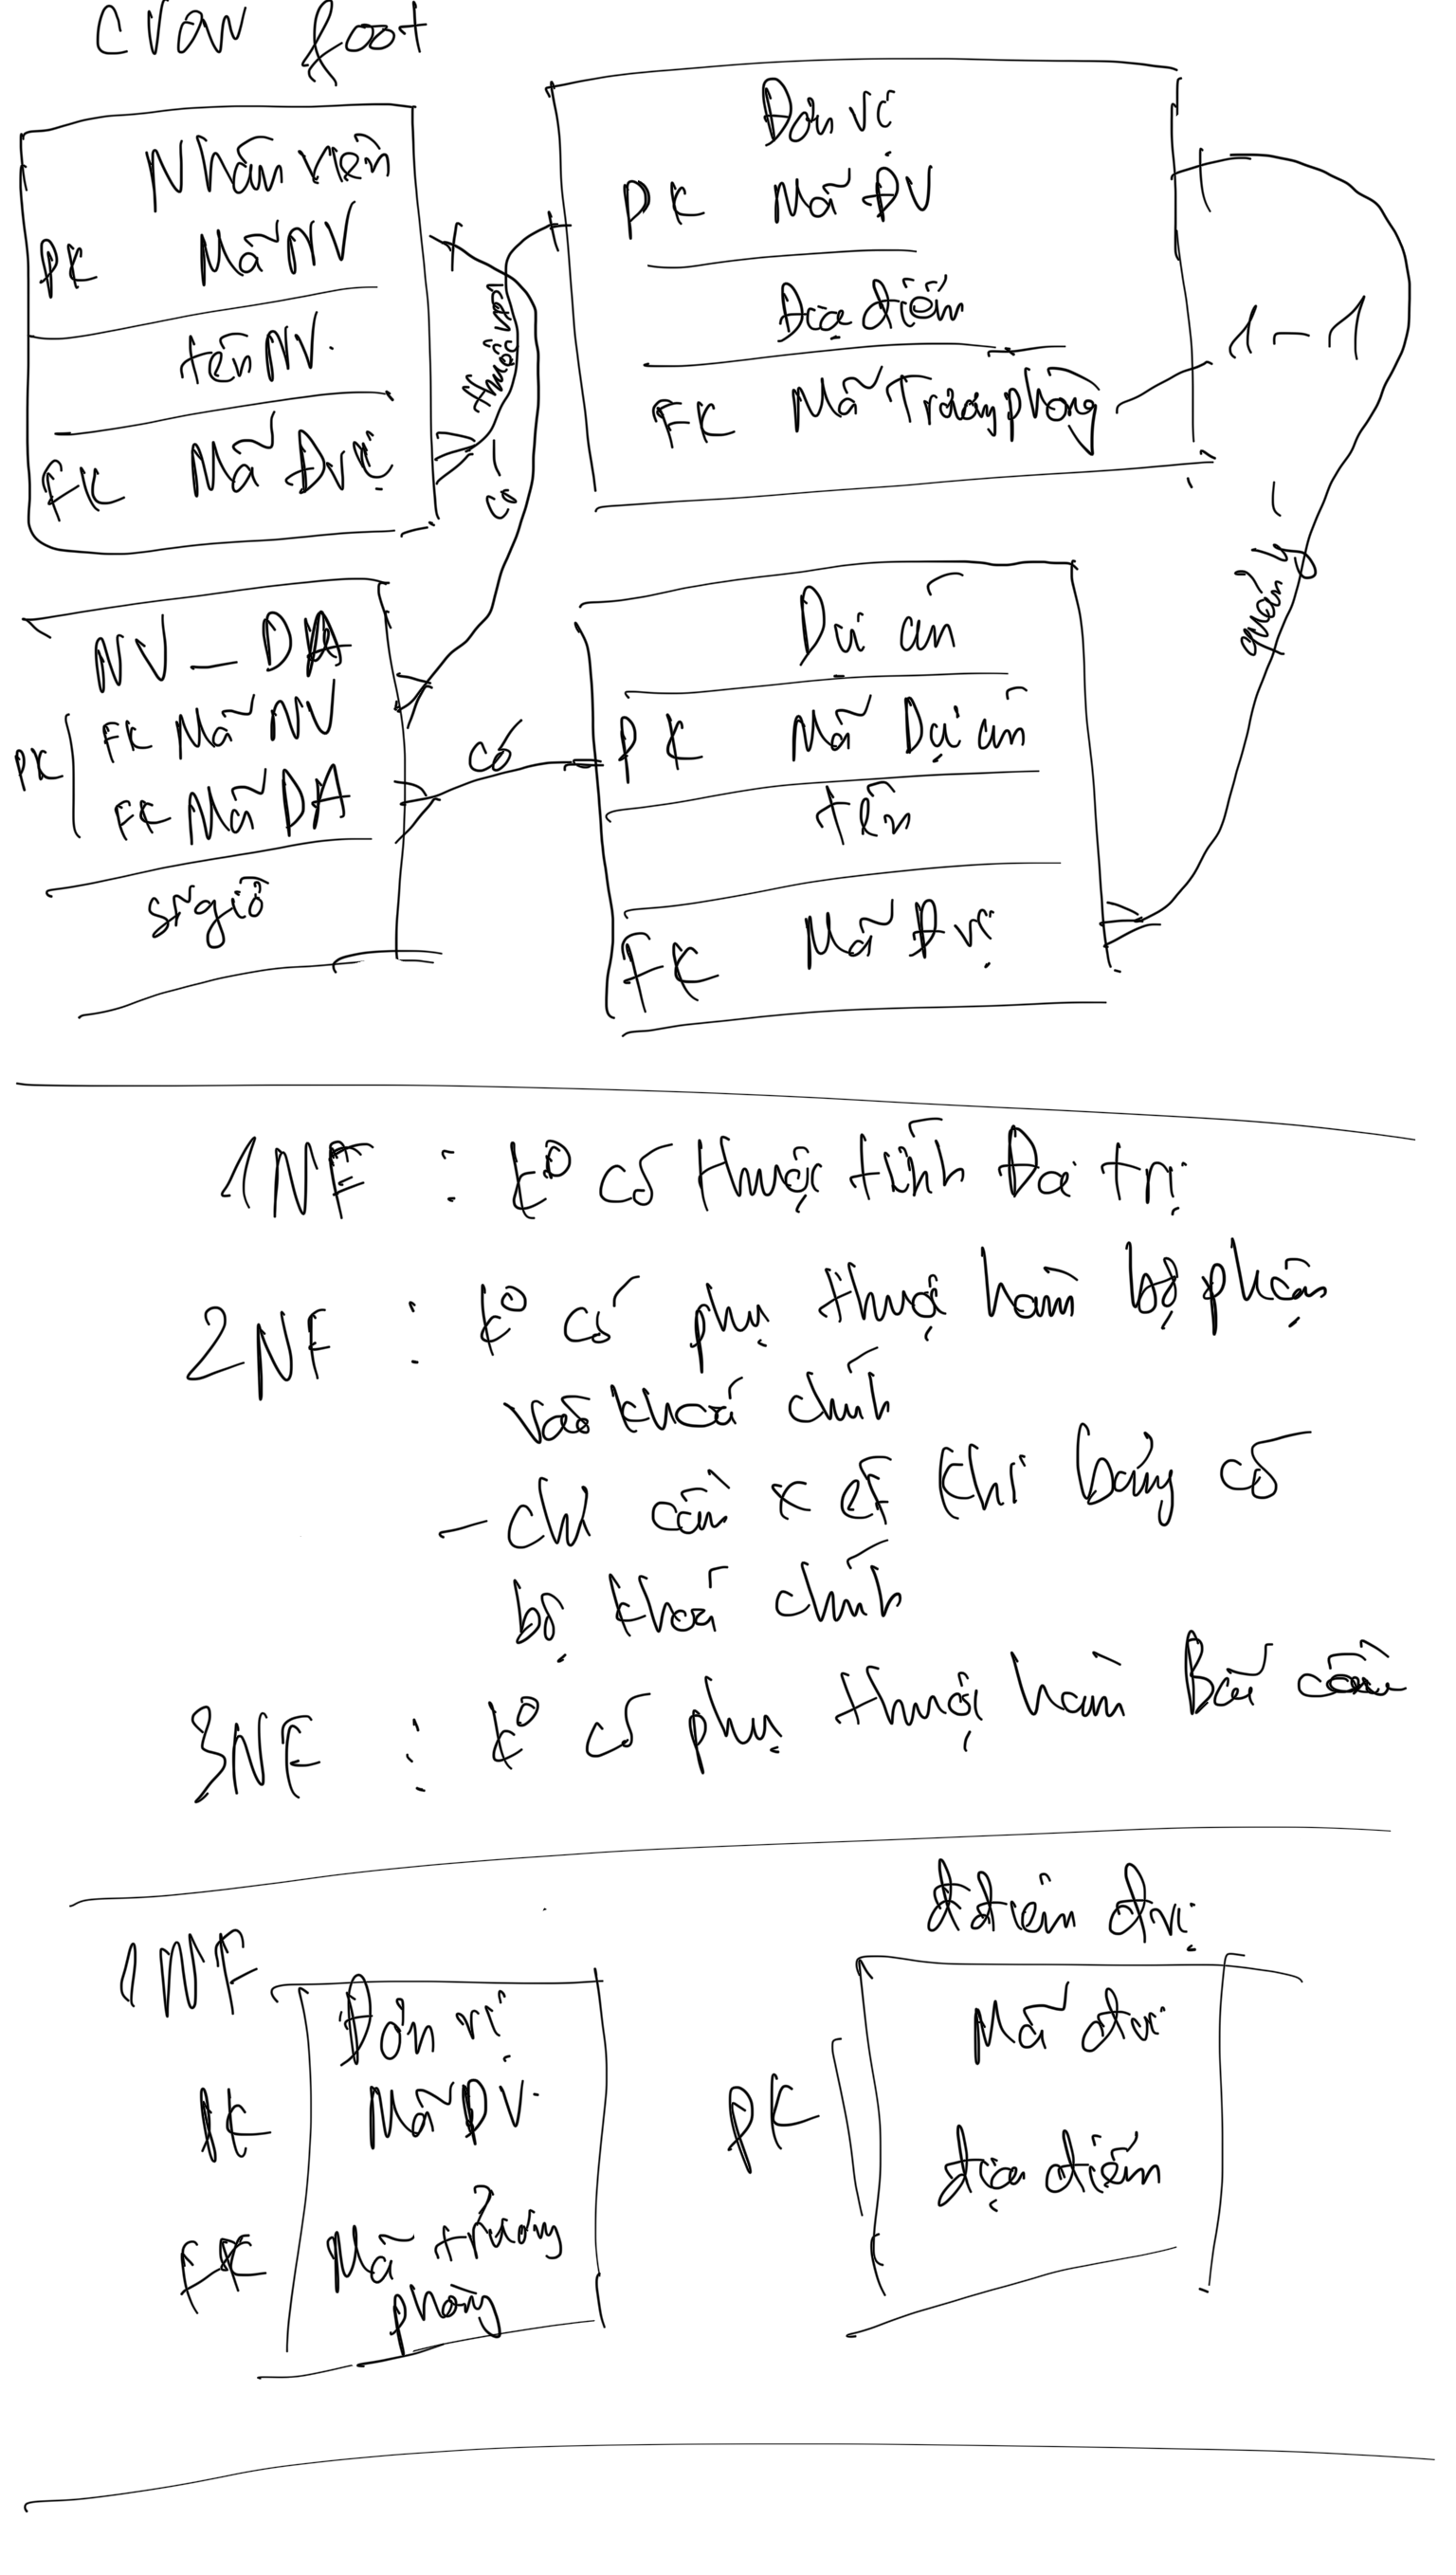 craw foot
Nhân viên
PK Mã NV
tên NV.
FK Mã Đvị
thuộc về
có
Đơn vị
PK Mã ĐV
Địa điểm
FK Mã Trưởng phòng
1-1
quản lý
NV_DA
PK
FK Mã NV
FK Mã DA
số giờ
có
Dự án
PK Mã Dự án
tên
FK Mã Đvị
1NF : k° có thuộc tính Đa trị
2NF : k° có phụ thuộc hàm bộ phận
vào khoá chính
- chỉ cần xét khi bảng có
bộ khoá chính
3NF : k° có phụ thuộc hàm Bắc cầu
1NF
Đơn vị
PK Mã ĐV.
FK Mã trưởng
phòng
đđiểm đvị
PK
Mã đvị
địa điểm